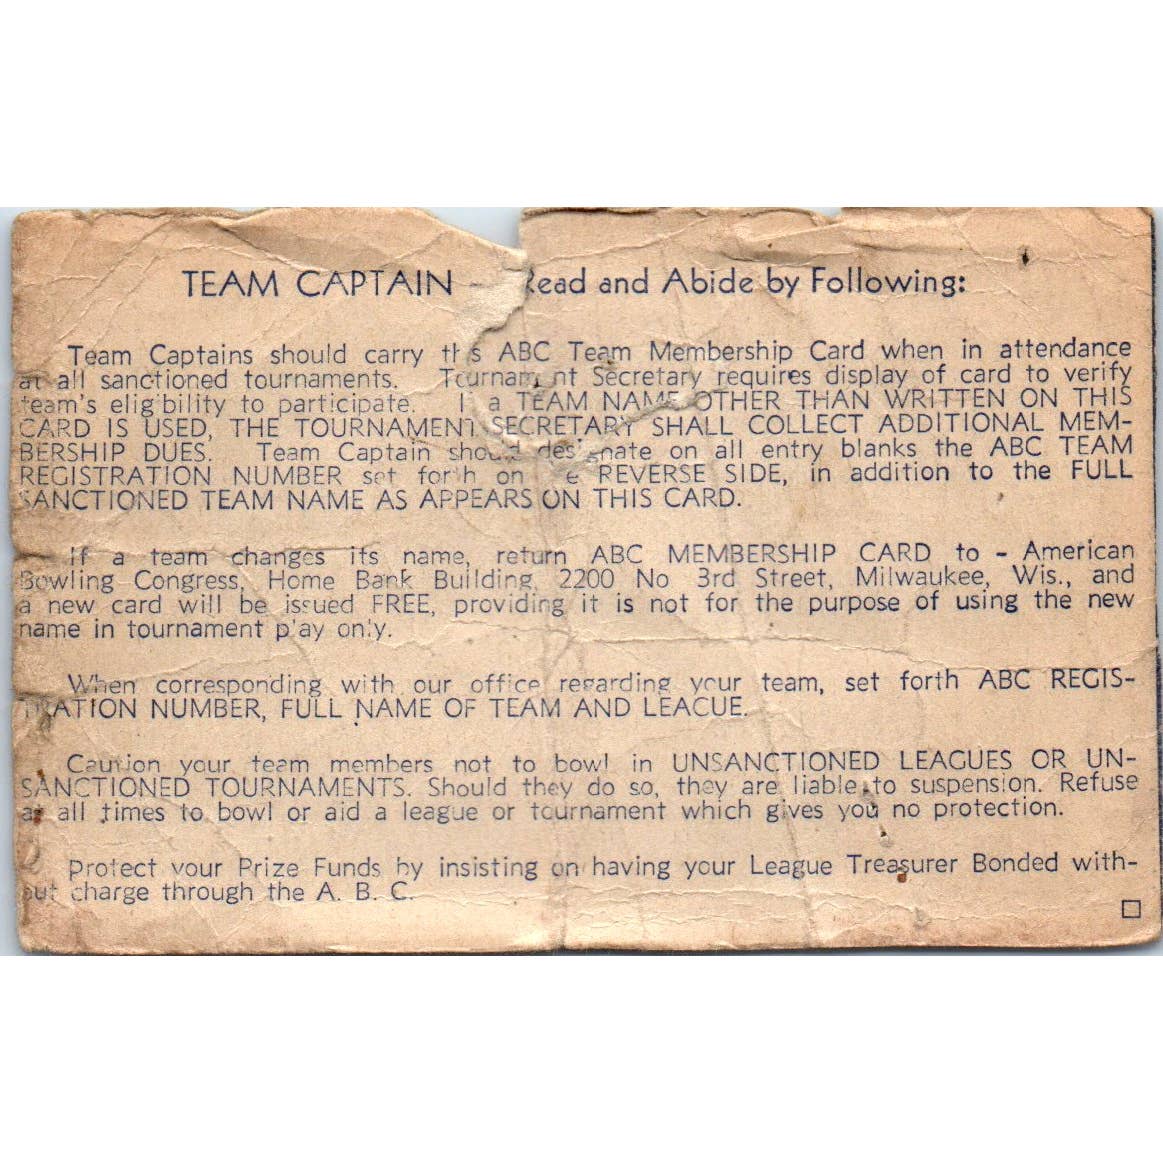 TEAM CAPTAIN - Read and Abide by Following:
Team Captains should carry this ABC Team Membership Card when in attendance
at all sanctioned tournaments. Tournament Secretary requires display of card to verify
team's eligibility to participate. If a TEAM NAME OTHER THAN WRITTEN ON THIS
CARD IS USED, THE TOURNAMENT SECRETARY SHALL COLLECT ADDITIONAL MEM-
BERSHIP DUES. Team Captain should designate on all entry blanks the ABC TEAM
REGISTRATION NUMBER set forth on the REVERSE SIDE, in addition to the FULL
SANCTIONED TEAM NAME AS APPEARS ON THIS CARD.
If a team changes its name, return ABC MEMBERSHIP CARD to - American
Bowling Congress, Home Bank Building, 2200 No 3rd Street, Milwaukee, Wis., and
a new card will be issued FREE, providing it is not for the purpose of using the new
name in tournament play only.
When corresponding with our office regarding your team, set forth ABC REGIS-
TRATION NUMBER, FULL NAME OF TEAM AND LEAGUE.
Caution your team members not to bowl in UNSANCTIONED LEAGUES OR UN-
SANCTIONED TOURNAMENTS. Should they do so, they are liable to suspension. Refuse
at all times to bowl or aid a league or tournament which gives you no protection.
Protect your Prize Funds by insisting on having your League Treasurer Bonded with-
out charge through the A. B. C.